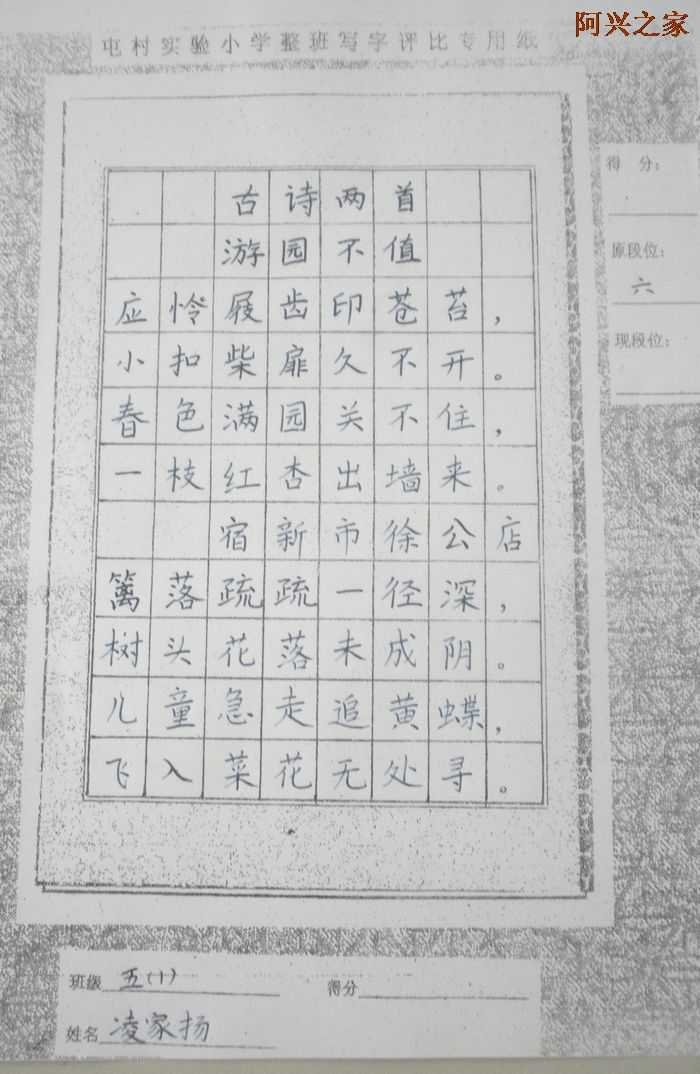 阿兴之家
屯村实验小学整班写字评比专用纸
得 分:
原段位:
六
现段位:
古诗两首
游园不值
应怜屐齿印苍苔,
小扣柴扉久不开。
春色满园关不住,
一枝红杏出墙来。
宿新市徐公店
篱落疏疏一径深,
树头花落未成阴。
儿童急走追黄蝶,
飞入菜花无处寻。
班级 五(1) 得分
姓名 凌家扬